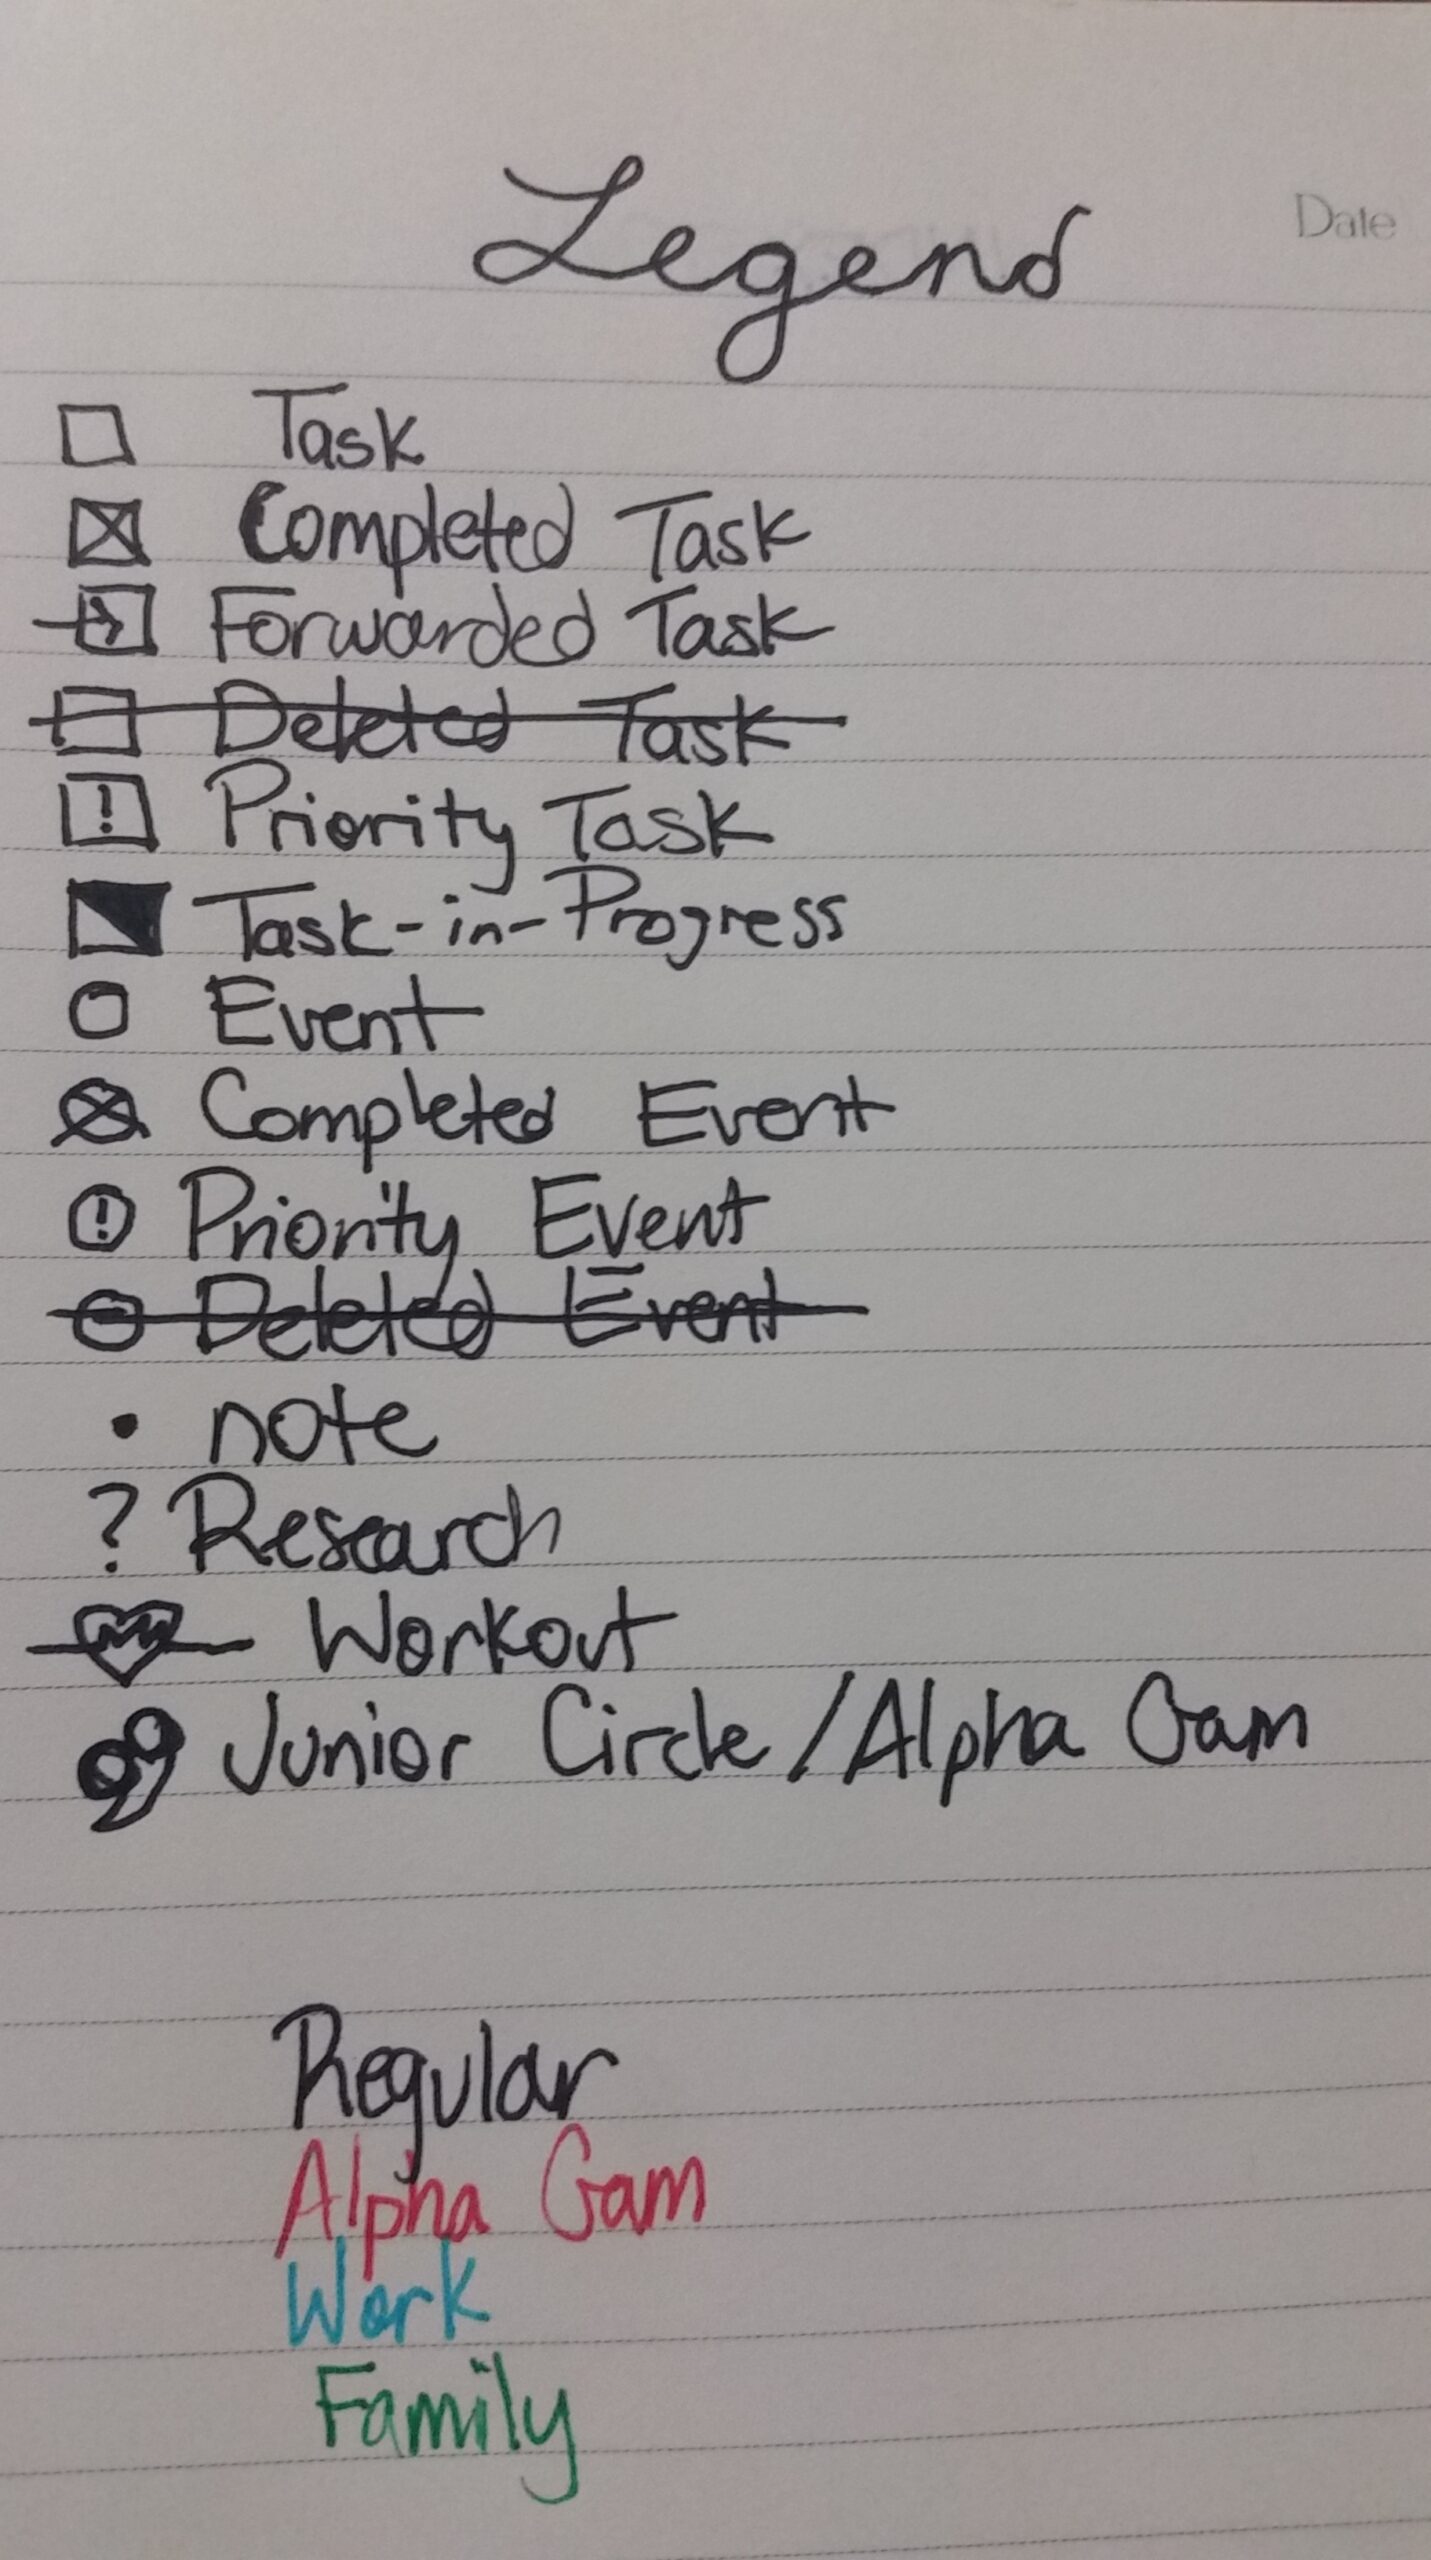 Legend
Date
Task
Completed Task
Forwarded Task
Deleted Task
! Priority Task
Task-in-Progress
Event
Completed Event
! Priority Event
Deleted Event
• note
? Research
Workout
Junior Circle/Alpha Gam
Regular
Alpha Gam
Work
Family